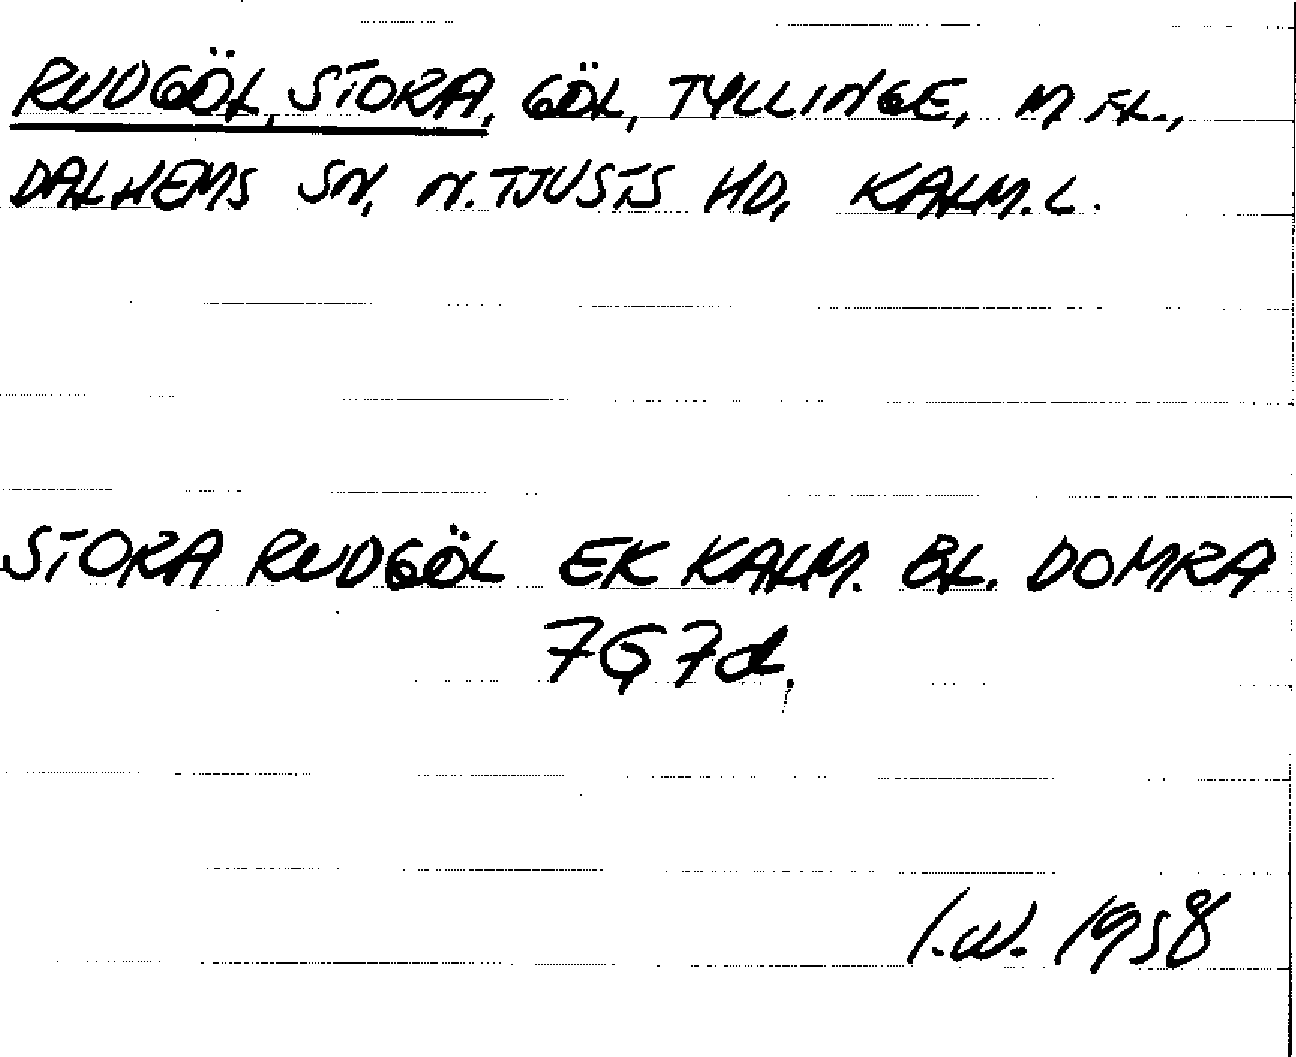 RUDGÖL, STORA, GÖL, TYLLINGE, M.FL.,
DALHEMS SN, N. TJUSTS HD, KALM. L.
STORA RUDGÖL EK KALM. BL. DOMRA
7G7d,
I.W. 1958